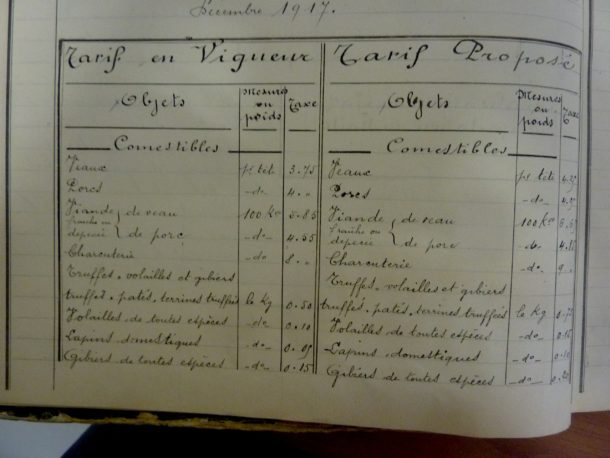 Décembre 1917.
Tarif en Vigueur
Objets Mesures ou poids Taxe
Comestibles
Veaux pr tête 3.75
Porcs -do- 4.„
Viande fraîche ou depecée { de veau 100 Kos 5.85
de porc -do- 4.55
Charcuterie -do- 8.„
Truffes, volailles et gibiers
truffés, patés, terrines truffées le Kg 0.50
Volailles de toutes espèces -do- 0.10
Lapins domestiques -do- 0.05
Gibiers de toutes espèces -do- 0.15
Tarif Proposé
Objets Mesures ou poids Taxe
Comestibles
Veaux pr tête
Porcs -do-
Viande fraîche ou depecée { de veau 100 Kos
de porc -do-
Charcuterie -do- 9
Truffes, volailles et gibiers
truffés, patés, terrines truffées le Kg 0.75
Volailles de toutes espèces -do- 0.15
Lapins domestiques -do- 0.10
Gibiers de toutes espèces -do- 0.20